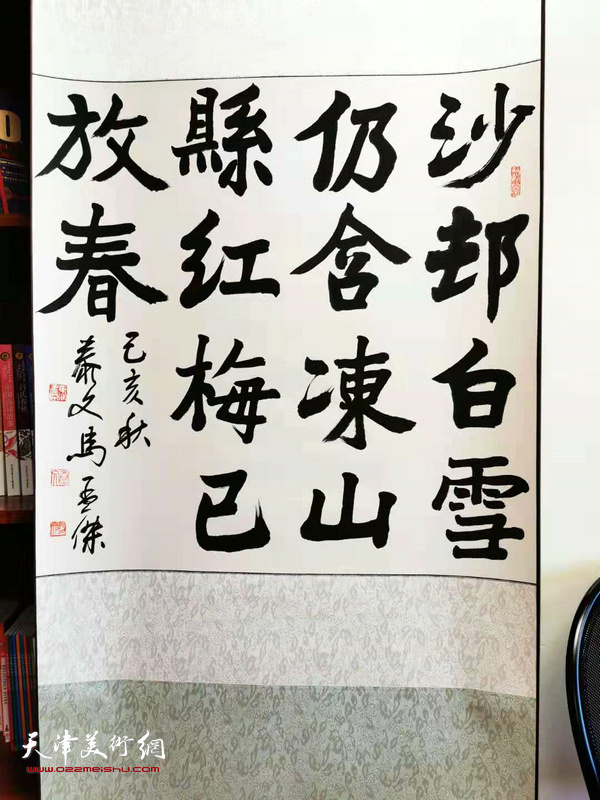 沙邨白雪
仍含凍山
縣红梅已
放春
己亥秋
蕣文馬孟傑
天津美術網
www.022meishu.com